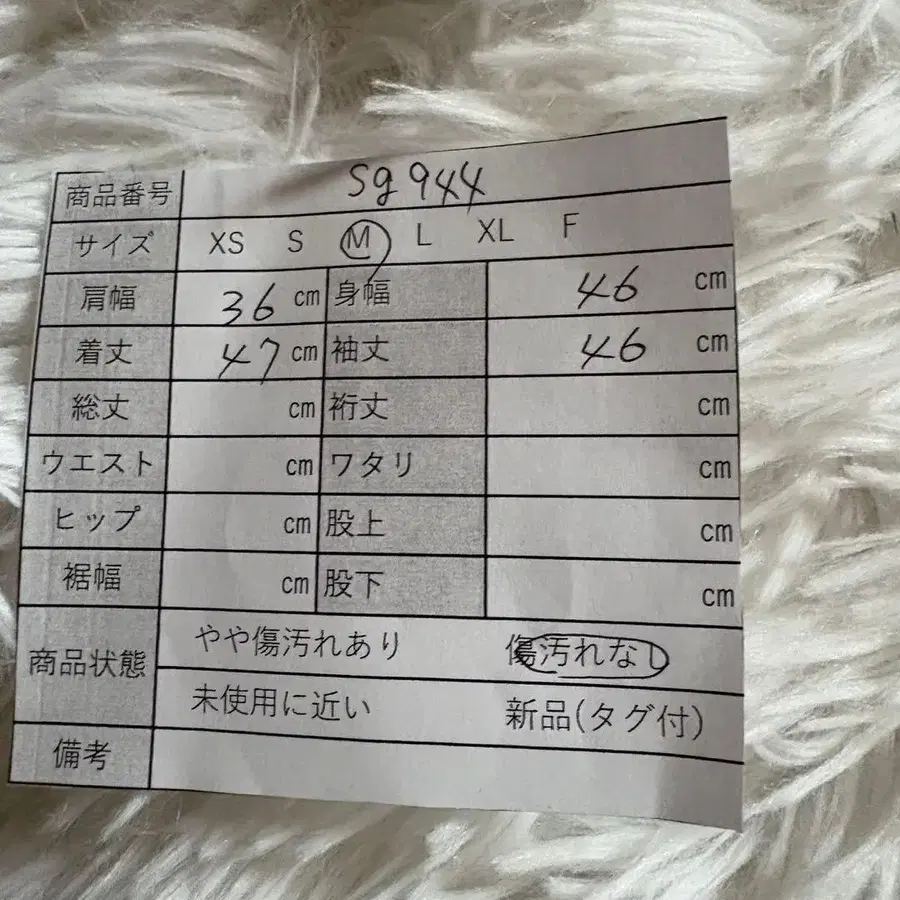 商品番号 sg944
サイズ XS S M L XL F
肩幅 36 cm 身幅 46 cm
着丈 47 cm 袖丈 46 cm
総丈 cm 裄丈 cm
ウエスト cm ワタリ cm
ヒップ cm 股上 cm
裾幅 cm 股下 cm
商品状態 やや傷汚れあり 傷汚れなし
未使用に近い 新品(タグ付)
備考